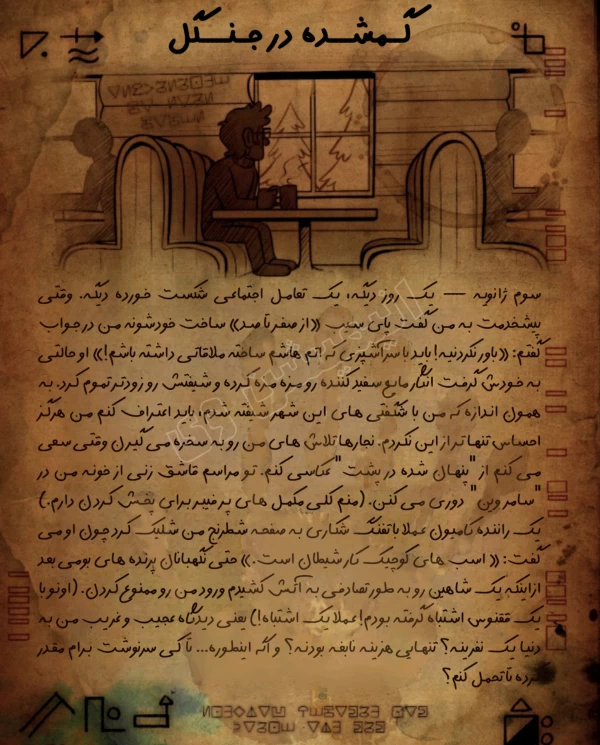 گمشده در جنگل
سوم ژانویه — یک روز دیگه، یک تعامل اجتماعی شکست خورده دیگه. وقتی
پیشخدمت به من گفت پای سیب «از صفر تا صد» ساخت خودشونه من در جواب
گفتم: «باور نکردنیه! باید با سرآشپزی که اتم هاشم ساخته ملاقاتی داشته باشم!» او حالتی
به خودش گرفت انگار مایع سفید کننده رو مزه مزه کرده و شیفتش رو زودتر تموم کرد. به
همون اندازه که من با شگفتی های این شهر شیفته شدم، باید اعتراف کنم من هرگز
احساس تنها تر از این نکردم. نجارها تلاش های من رو به سخره می گیرن وقتی سعی
می کنم از "پنهان شده در پشت" عکاسی کنم. تو مراسم قاشق زنی از خونه من در
"سامروین" دوری می کنن. (منم کلی مکمل های پر فیبر برای پخش کردن دارم.)
یک راننده کامیون عملا با تفنگ شکاری به صفحه شطرنج من شلیک کرد چون او می
گفت: «اسب های کوچیک کار شیطان است.» حتی نگهبانان پرنده های بومی بعد
ازاینکه یک شاهین رو به طور تصادفی به آتش کشیدم ورود من رو ممنوع کردن. (اونو با
یک ققنوس اشتباه گرفته بودم! عملا یک اشتباه!) یعنی دیدگاه عجیب و غریب من به
دنیا یک نفرینه؟ تنهایی هزینه نابغه بودنه؟ و اگر اینطوره... تا کی سرنوشت برام مقدر
کرده تا تحمل کنم؟